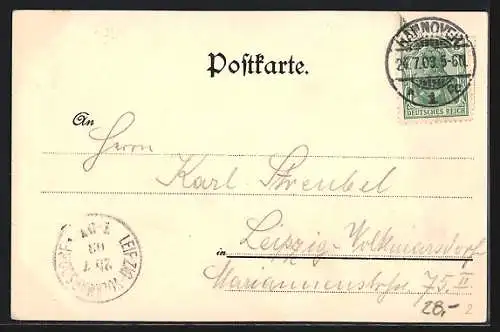 HANNOVER
24.7.03.5-6N.
* 1 c.
DEUTSCHES REICH
Postkarte.
An
Herrn
Karl Streubel
in Leipzig-Volkmarsdorf
Mariannenstr. 75 II
LEIPZIG-VOLKMARSDORF
25 7
03
7-8V
28,- 2